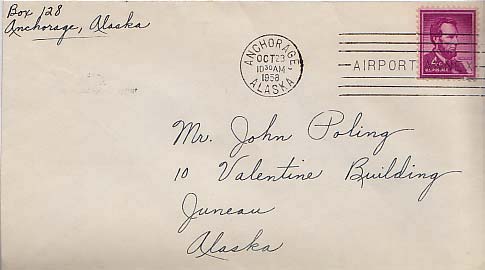 Box 128
Anchorage, Alaska
ANCHORAGE,
OCT 23
10 30 AM
1958
ALASKA
AIRPORT
4¢
Mr. John Poling
10 Valentine Building
Juneau
Alaska